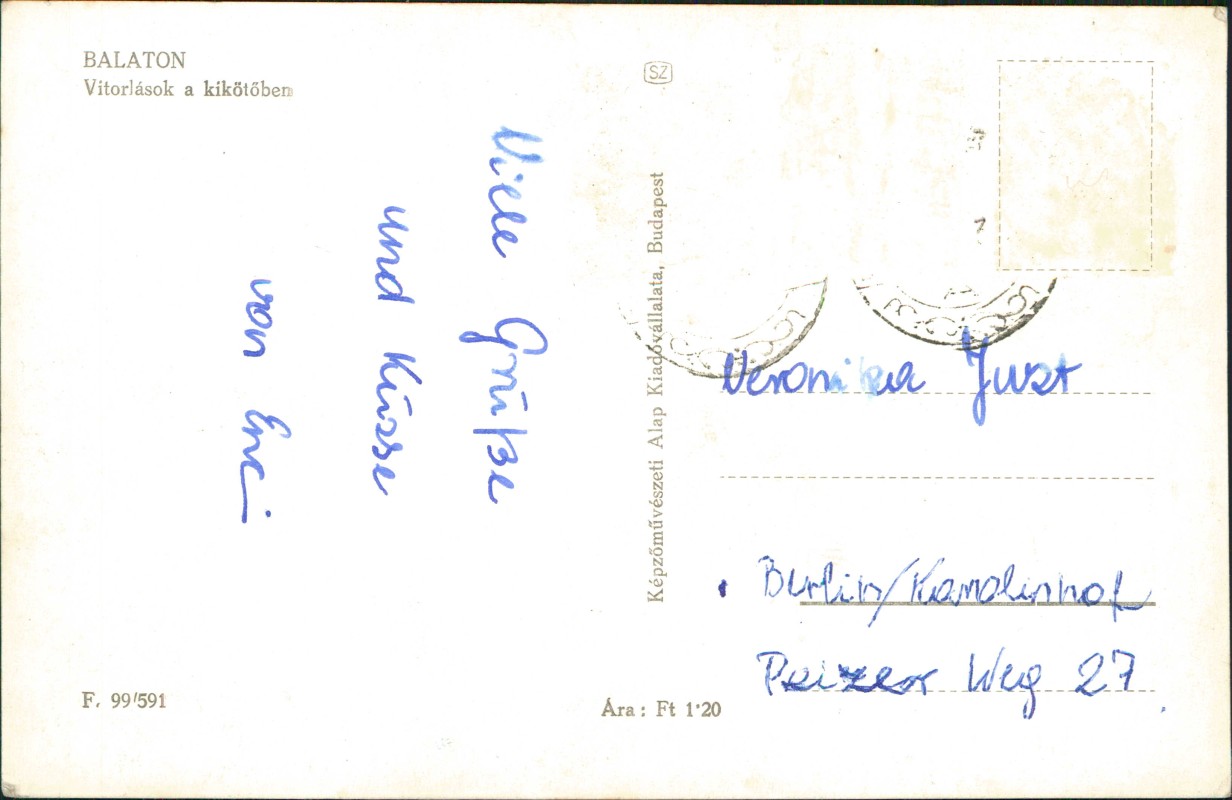 BALATON
Vitorlások a kikötőben
SZ
Viele Grüße
und Küsse
von
Képzőművészeti Alap Kiadóvállalata, Budapest
Veronika Just
Berlin/Karolinenhof
Peizer Weg 27
F. 99/591
Ára: Ft 1·20